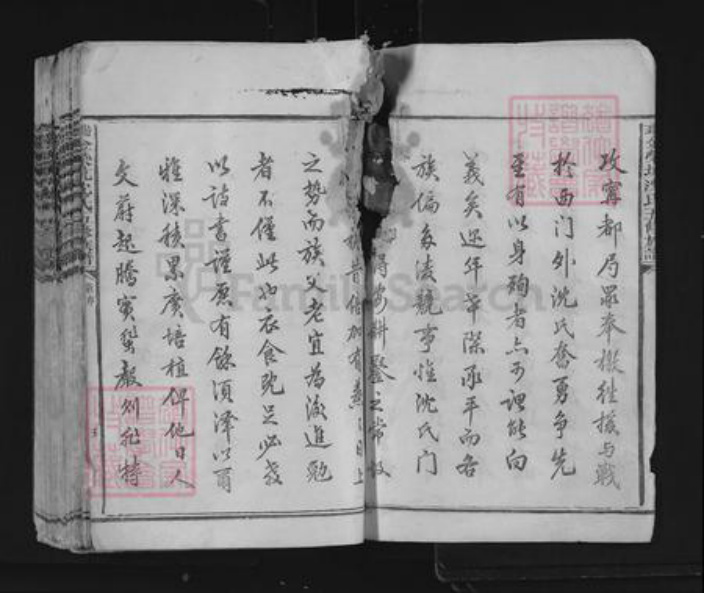 攻寧都局眾奉檄往援与戰
於西门外沈氏奮勇争先
至有以身殉者亦可谓能向
義矣近年幸際承平而各
族偏多凌競事惟沈氏门
得安耕鑿之常故
昔倍加有蒸蒸日上
之势而族父老宜为激進勉
者不僅此也衣食既足必教
以诗書謹愿有餘須澤以爾
雅深積累廣培植俾他日人
文蔚起騰實蜚聲列
特
FamilySearch